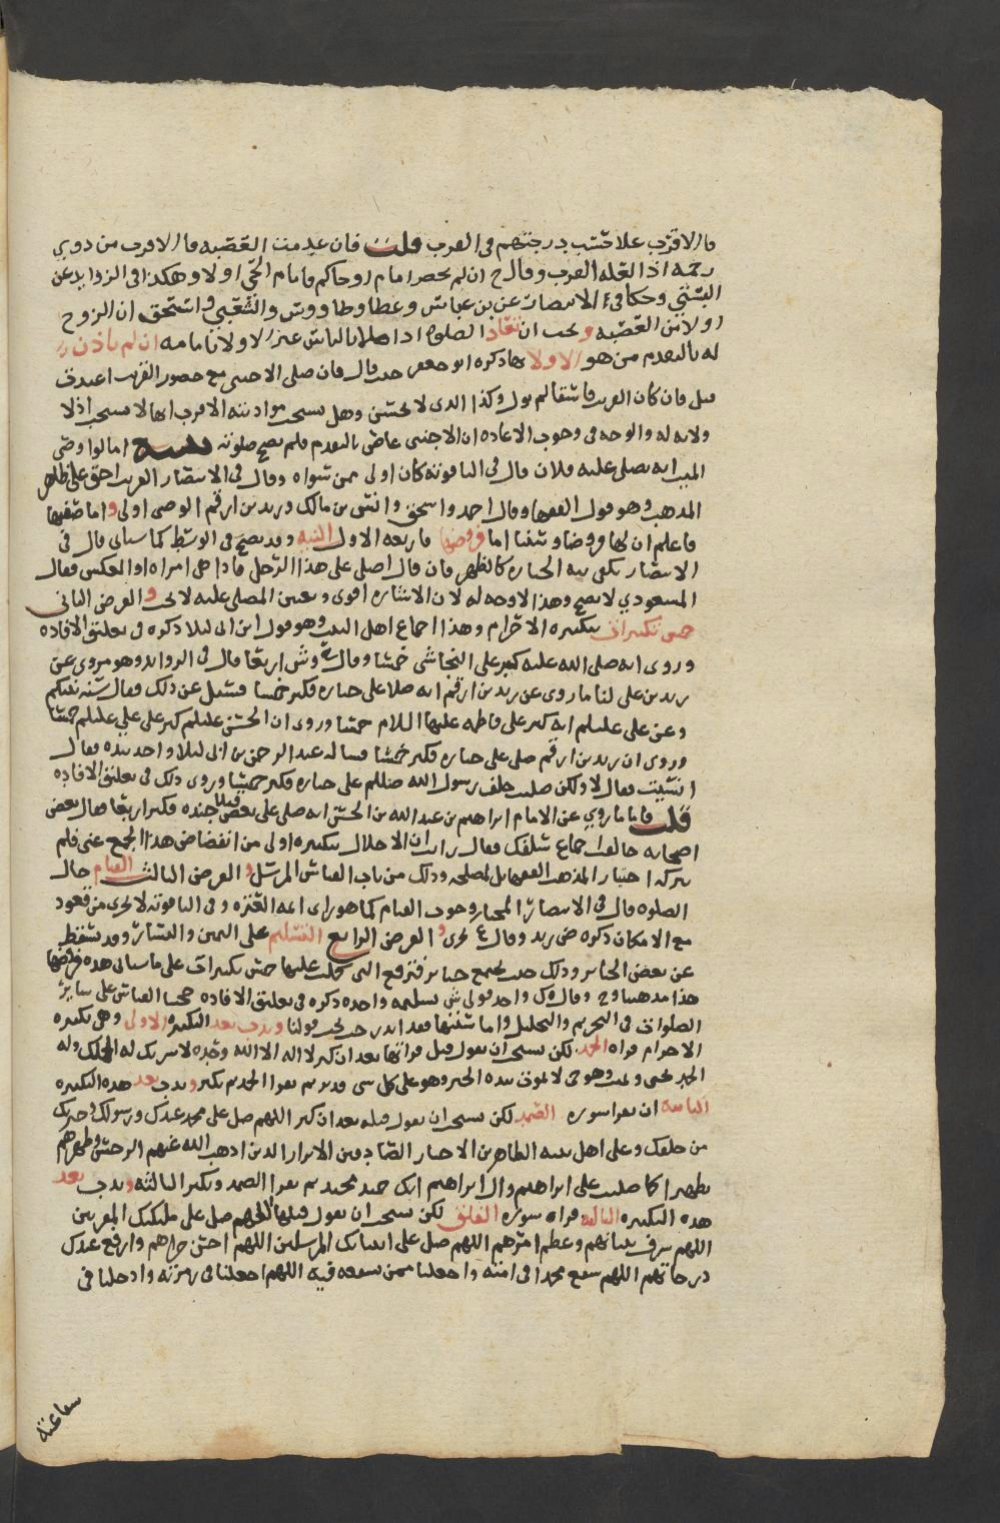 فالاقرب علا حسب درجتهم في القرب قلت فان عدمت العصبه فالاقرب من ذوي
رحمه اذ العله القرب وقال ح ان لم يحضر امام او حاكم فامام الحي اولا وهكذا في الزوايد عن
البستي وحكا في الانتصار عن بن عباس وعطا وطاووس والشعبي واسحق ان الزوج
اولا من العصبه وتجب ان تعاد الصلوه اذا صلا بالناس غير الاولا بامامه ان لم ياذن
له بالتقدم من هو الاولا هذا ذكره ابو جعفر حيث قال فان صلى الاجنبي مع حضور القريب اعيدت
قيل فان كان القريب فاسقا لم وكذا الذي لا يحسن وهل يستحب مواذنته الاقرب انها لا تستحب اذ لا
ولايه له والوجه في وجوب الاعاده ان الاجنبي عاصي بالتقدم فلم يصح صلوته اما لو اوصى
الميت انه يصلي عليه فلان قال في الياقوته كان اولى ممن سواه وقال في الانتصار القريب احق على ظاهر
المذهب وهو قول الفقها وقال احمد واسحق وانس بن مالك وزيد بن ارقم الوصي اولى واما صفتها
فاعلم ان لها فروضا وسننا اما فروضها فاربعه الاول النيه وقد يصح في الوسط كما سياتي قال في
الانتصار يكفي نيه الجنازه كالظهر فان قال اصلي على هذا الرجل فاذا هي امراه او العكس فقال
المسعودي لا يصح وهذا لا وجه له لان الاشاره اقوى وتعيين المصلى عليه لا يجب والفرض الثاني
خمس تكبيرات بتكبيره الاحرام وهذا اجماع اهل البيت وهو قول ابن ابي ليلا ذكره في تعليق الافاده
وروي انه صلى الله عليه كبر على النجاشي خمسا وقال وش اربعا قال في الزوايد وهو مروي عن
زيد بن علي لنا ما روي عن زيد بن ارقم انه صلا على جنازه فكبر خمسا فسئل عن ذلك فقال سنه نبيكم
وعن علي عليلم انه كبر على فاطمه عليها السلام خمسا وروي ان الحسن عليلم كبر على علي عليلم خمسا
وروي ان زيد بن ارقم صلى على جنازه فكبر خمسا فساله عبد الرحمن بن ابي ليلا واخذ بيده فقال
انسيت فقال لا ولكن صليت خلف رسول الله صللم على جنازه فكبر خمسا وروي ذلك في تعليق الافاده
قلت فاما ما روي عن الامام ابراهيم بن عبد الله بن الحسن انه صلى على بعض قتلا جنده فكبر اربعا فقال بعض
اصحابه خالفت اجماع سلفك فقال رايت ان الاخلال بتكبيره اولى من انفضاض هذا الجمع عني فلم
يتركه اختيارا لمذهب الفقها بل لمصلحه وذلك من باب القياس المرسل و الفرض الثالث القيام حال
الصلوه قال في الانتصار المختار وجوب القيام كما هو راي ائمه العتره وفي الياقوته لا تجزي من قعود
مع الامكان ذكره ض زيد وقال ع تجزي و الفرض الرابع التسليم على اليمين واليسار وقد تسقط
عن بعض الجنايز وذلك حيث تجتمع جنايز فترفع التي كملت عليها خمس تكبيرات على ما سياتي هذه فروضها
هذا مذهبنا و ح وقال ك واحد قولي ش تسليمه واحده ذكره في تعليق الافاده حجتنا القياس على ساير
الصلوات في التحريم والتحليل واما سننها فقد اندرجت تحت قولنا وندب بعد التكبيره الاولى وهي تكبيره
الاحرام قراه الحمد لكن يستحب ان يقول قبل قراتها بعد ان كبر لا اله الا الله وحده لا شريك له له الملك وله
الحمد يحيي ويميت وهو حي لا يموت بيده الخير وهو على كل شي قدير ثم يقرا الحمد ثم يكبر وندب بعد هذه التكبيره
الثانيه ان يقرا سوره الصمد لكن يستحب ان يقول قبله بعد ان كبر اللهم صل على محمد عبدك ورسولك خيرتك
من خلقك وعلى اهل بيته الطاهرين الاخيار الصادقين الابرار الذين اذهب الله عنهم الرجس وطهرهم
تطهيرا كما صليت على ابراهيم وال ابراهيم انك حميد مجيد ثم يقرا الصمد ويكبر الثالثه وندب بعد
هذه التكبيره الثالثه قراه سوره الفلق لكن يستحب ان يقول قبلها اللهم صل على ملئكتك المقربين
اللهم شرف بنيانهم وعظم امرهم اللهم صل على انبيائك المرسلين اللهم احسن جزاهم وارفع عندك
درجاتهم اللهم شفع محمدا في امته واجعلنا ممن تشفعه فيه اللهم اجعلنا في زمرته وادخلنا في
شفاعته